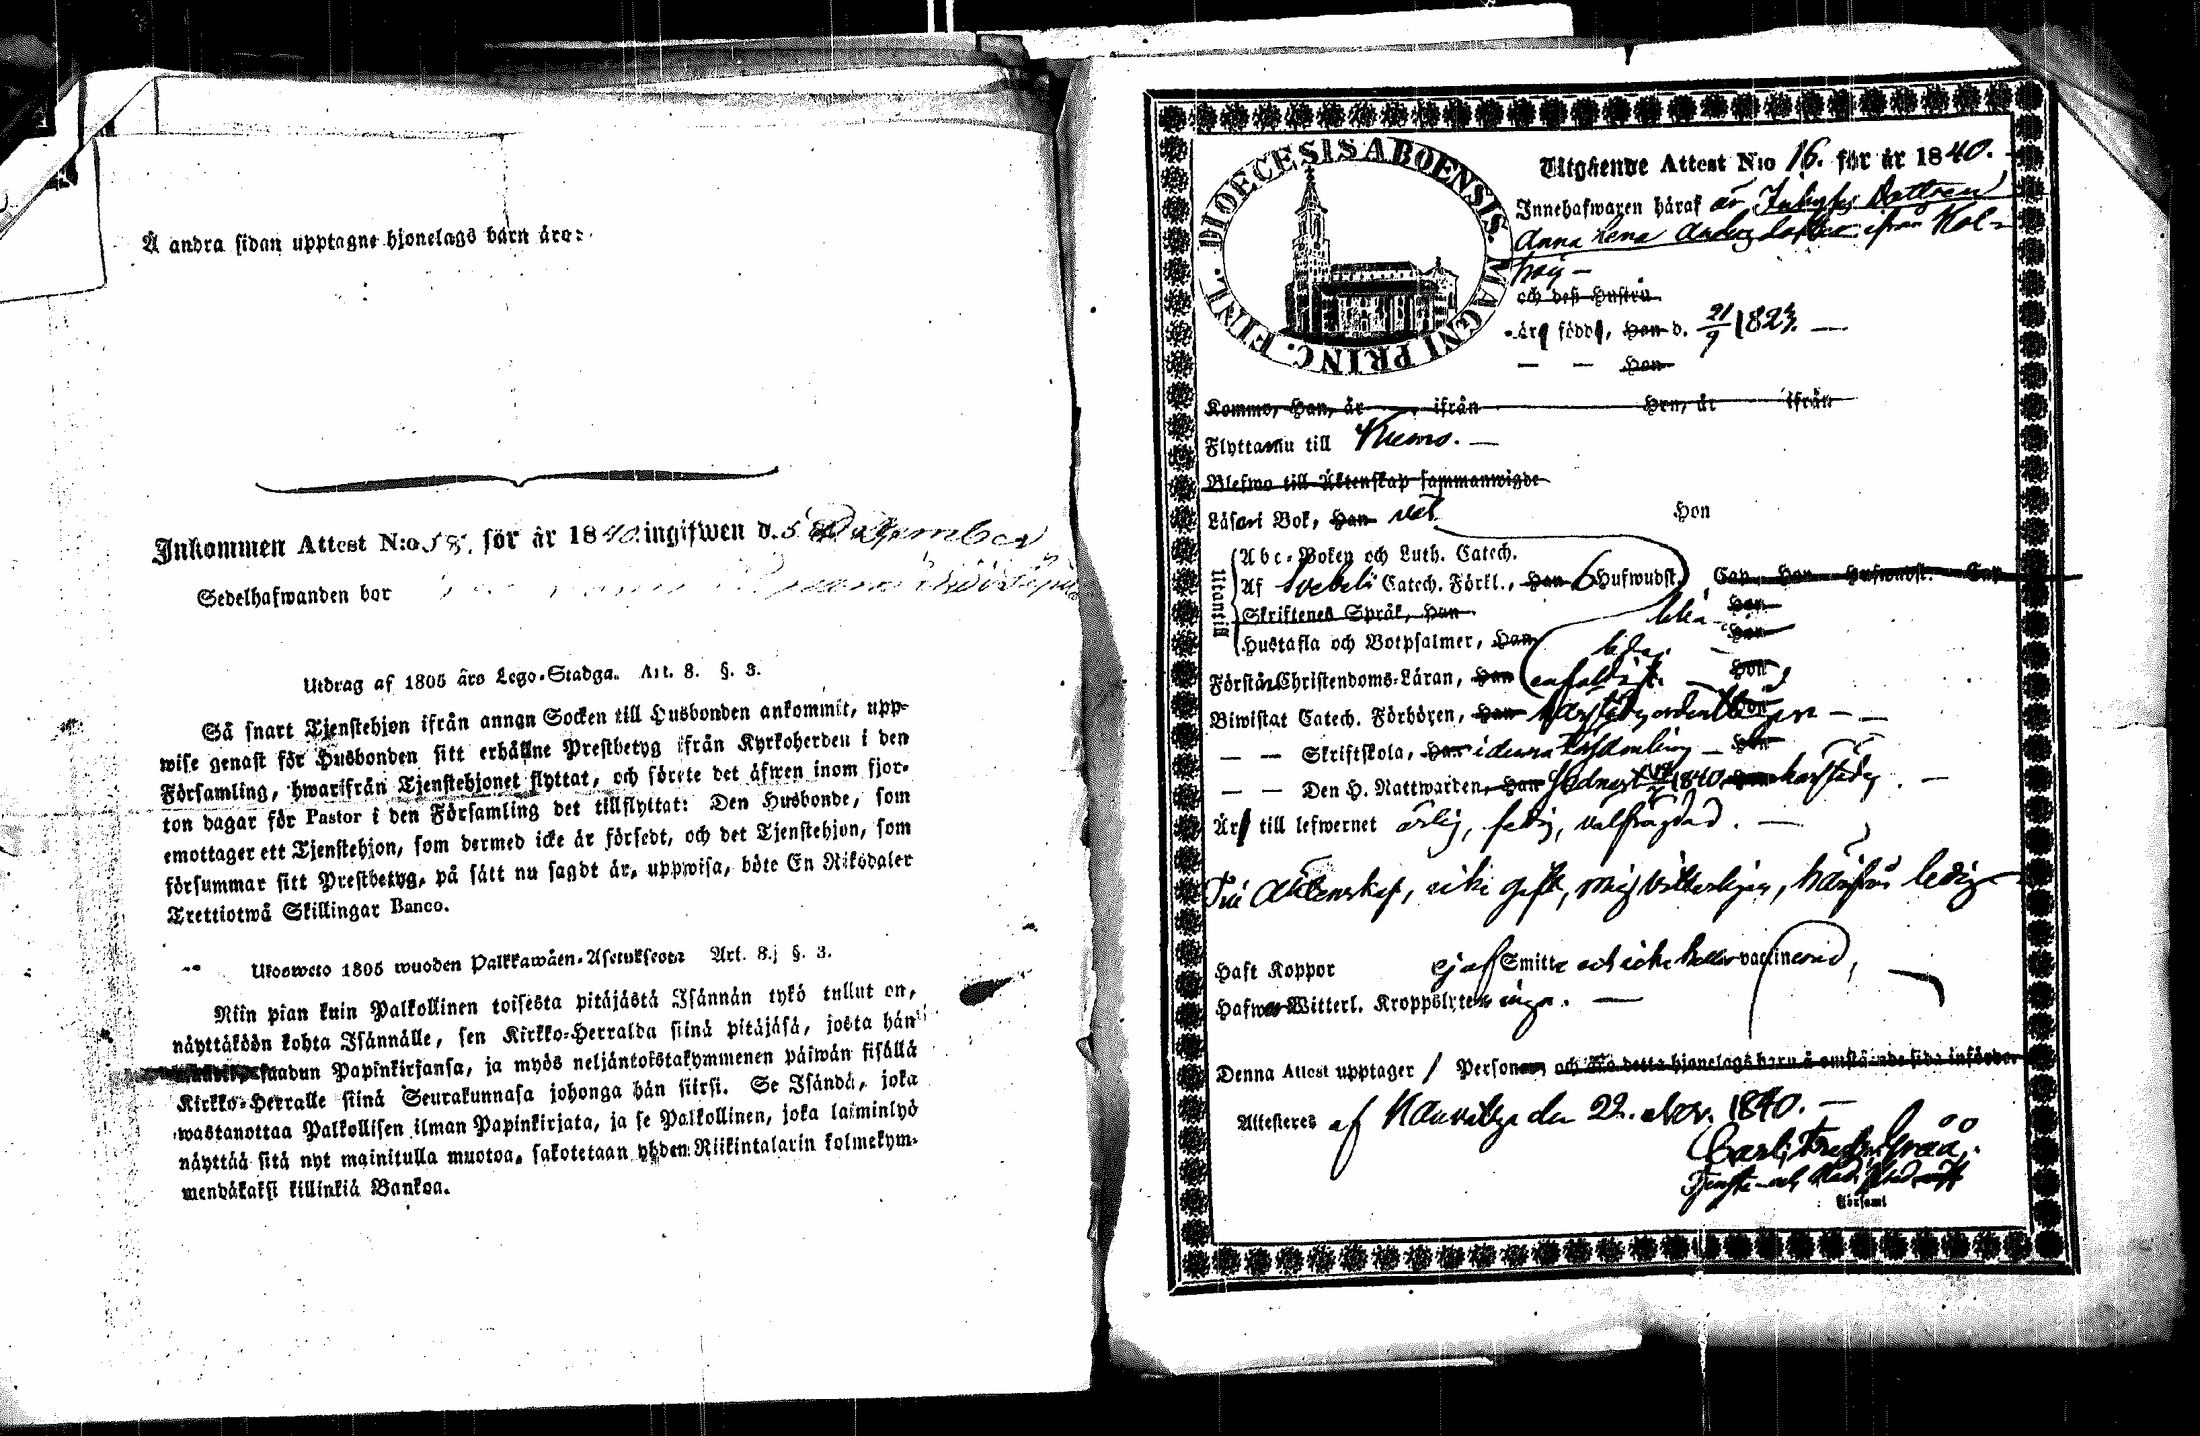 Å andra sidan upptagne hjonelags barn äro:
Inkommen Attest N:o 58. för år 1840. ingifwen d. 5 December
Sedelhafwanden bor
Utdrag af 1805 års Lego-Stadga. Art. 8. §. 3.
Så snart Tjenstehjon ifrån annan Socken till Husbonden ankommit, upp-
wise genast för Husbonden sitt erhållne Prestbetyg ifrån Kyrkoherden i den
Församling, hwarifrån Tjenstehjonet flyttat, och förete det äfwen inom fjor-
ton dagar för Pastor i den Församling det tillflyttat: Den Husbonde, som
emottager ett Tjenstehjon, som dermed icke är försedt, och det Tjenstehjon, som
försummar sitt Prestbetyg, på sätt nu sagdt är, uppwisa, böte En Riksdaler
Trettiotwå Skillingar Banco.
Ulosweto 1805 wuoden Palkkawäen-Asetuksesta Art. 8. §. 3.
Niin pian kuin Palkollinen toisesta pitäjästä Isännän tykö tullut on,
näyttäköön kohta Isännälle, sen Kirkko-Herralda siinä pitäjäsä, josta hän
saadun Papinkirjansa, ja myös neljäntoistakymmenen päiwän sisällä
Kirkko-Herralle siinä Seurakunnasa johonga hän siirsi. Se Isändä, joka
wastanottaa Palkollisen ilman Papinkirjata, ja se Palkollinen, joka laiminlyö
näyttää sitä nyt mainitulla muotoa, sakotetaan yhden Riikintalarin kolmekym-
mendäkaksi killinkiä Bankoa.
DIOECESIS ABOENSIS. MAGNI PRINC. FINL.
Utgående Attest N:o 16. för år 1840.
Innehafwaren häraf är Dottren
Anna Lena Andersdotter ifrån Kol-
och dess Hustru
är född, Han d. 21/9 1823. —
— — Hon
Kommo, Han, år ifrån Hon, år ifrån
Flyttar nu till Kumo. —
Blefwo till Äktenskap sammanwigde
Läser i Bok, Han wäl Hon
Utantill
Abc-Boken och Luth. Catech.
Af Svebeli Catech. Förkl., Han 6 Hufwudst. Cap. Hon Hufwudst. Cap.
Skriftenes Språk, Han Hon
Hustafla och Botpsalmer, Han Hon
Förstår Christendoms-Läran, Han enfaldigt. Hon
Biwistat Catech. Förhören, Han Hon
— — Skriftskola, Han i denna Församling — Hon
— — Den H. Nattwarden, Han sednast 1840 Hon
Är till lefwernet ärlig, fredlig, välfrägdad. —
Till Äktenskap, icke gift, mig vitterligen, härifrån ledig
Haft Koppor ej af Smitta och icke heller vaccinerad,
Hafwer Witterl. Kroppslyten inga. —
Denna Attest upptager 1 Person och äro detta hjonelags barn å omstående sida införde.
Attesteres af Nauvitzo den 22. Nov. 1840. —
Carl Fredr. Grää
Församl